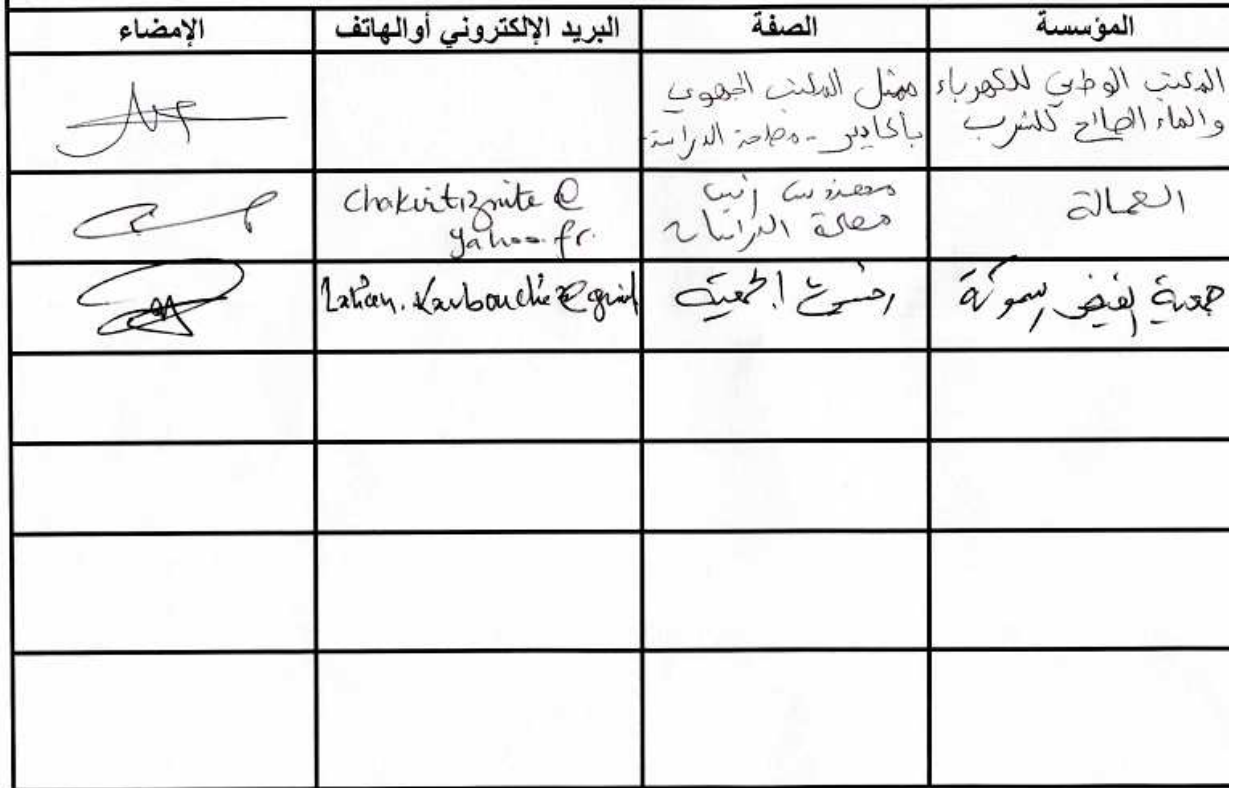 المؤسسة الصفة البريد الإلكتروني أو الهاتف الإمضاء
المكتب الوطني للكهرباء
والماء الصالح للشرب
ممثل المكتب الجهوي
بأكادير - مصلحة الدراسة -
العمالة
مهندس
مصلحة الدراسات
chakirtiznite@
yahoo.fr.
جمعية الفيض
الجمعية